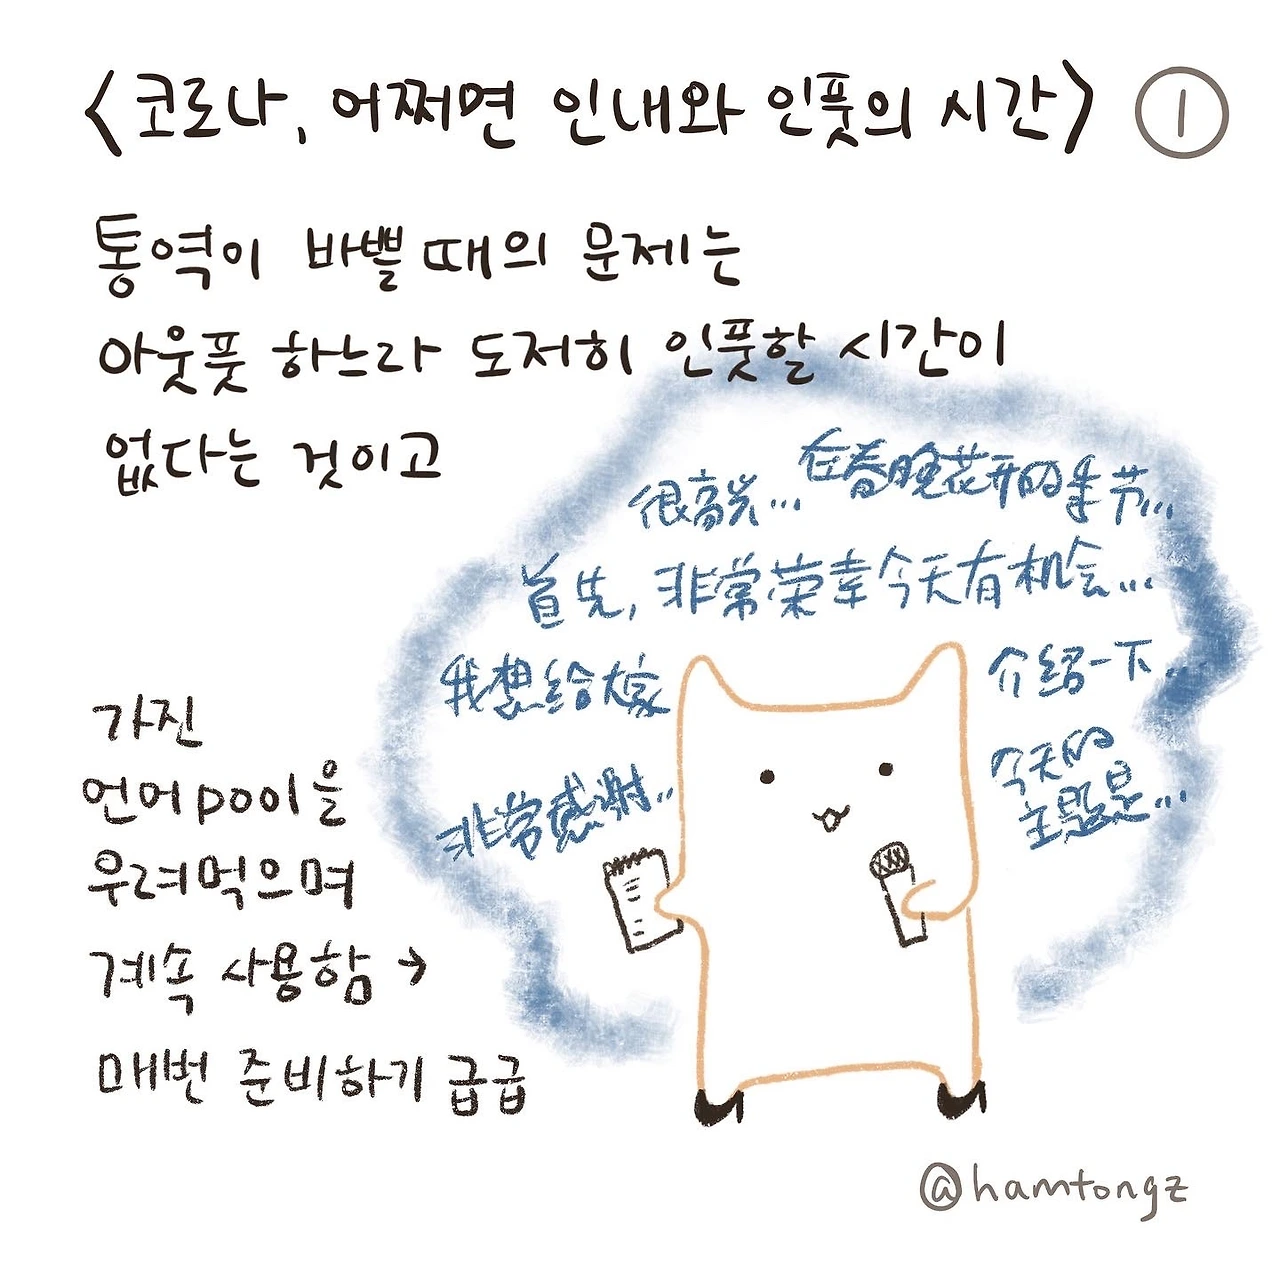 <코로나, 어쩌면 인내와 인풋의 시간> ①
통역이 바쁠 때의 문제는
아웃풋 하느라 도저히 인풋할 시간이
없다는 것이고
很高兴... 在春晚花开的季节...
首先, 非常荣幸今天有机会...
我想给大家 介绍一下..
非常感谢..
今天的
主题是...
가진
언어pool을
우려먹으며
계속 사용함 →
매번 준비하기 급급
@hamtongz